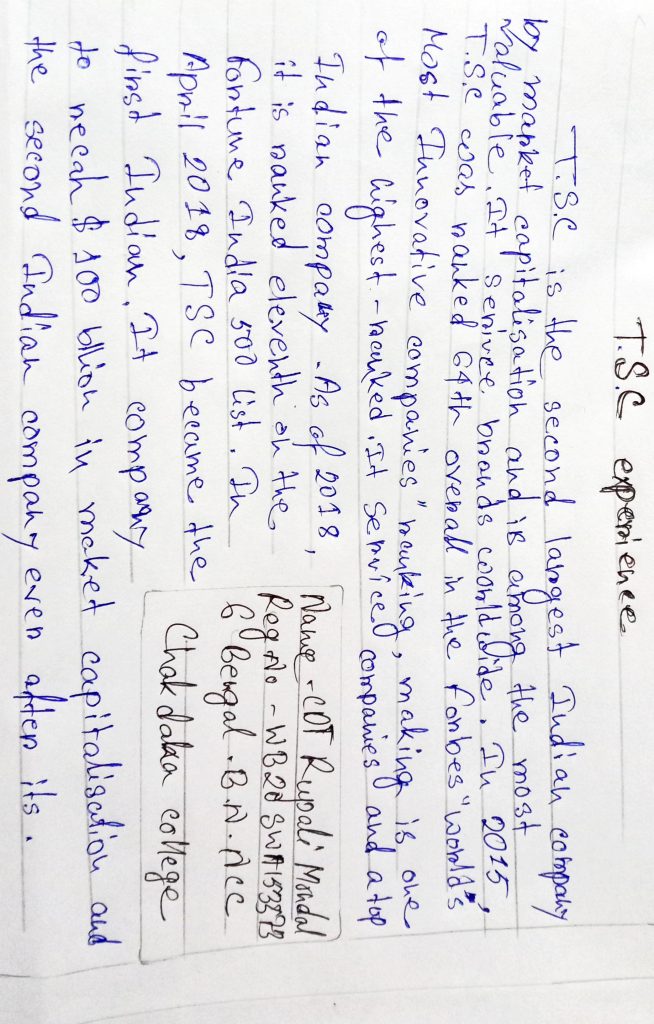 T.S.C experience
T.S.C is the second largest Indian company
by market capitalisation and is among the most
valuable. It serivce brands worldwide. In 2015,
T.S.C was ranked 64th overall in the Forbes "world's
Most Innovative companies" ranking, making is one
of the highest-ranked. It serviced companies and a top
Indian company. As of 2018,
it is ranked eleventh on the
Fortune India 500 list. In
April 2018, TSC became the
first Indian. It company
to recah $ 100 bllion in maket capitalisation and
the second Indian company even after its.
Name - CDT Rupali Mondal
Reg No - WB20SWA153393
6 Bengal. B.N. NCC
Chakdaha college